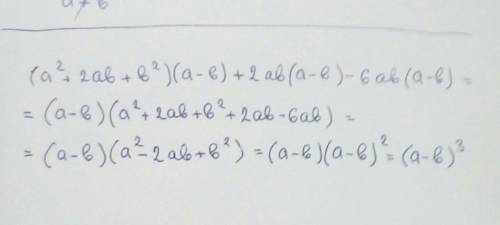 a≠b
(a² + 2ab + b²)(a-b) + 2ab(a-b) - 6ab(a-b) =
= (a-b)(a² + 2ab + b² + 2ab - 6ab) =
= (a-b)(a² - 2ab + b²) = (a-b)(a-b)² = (a-b)³